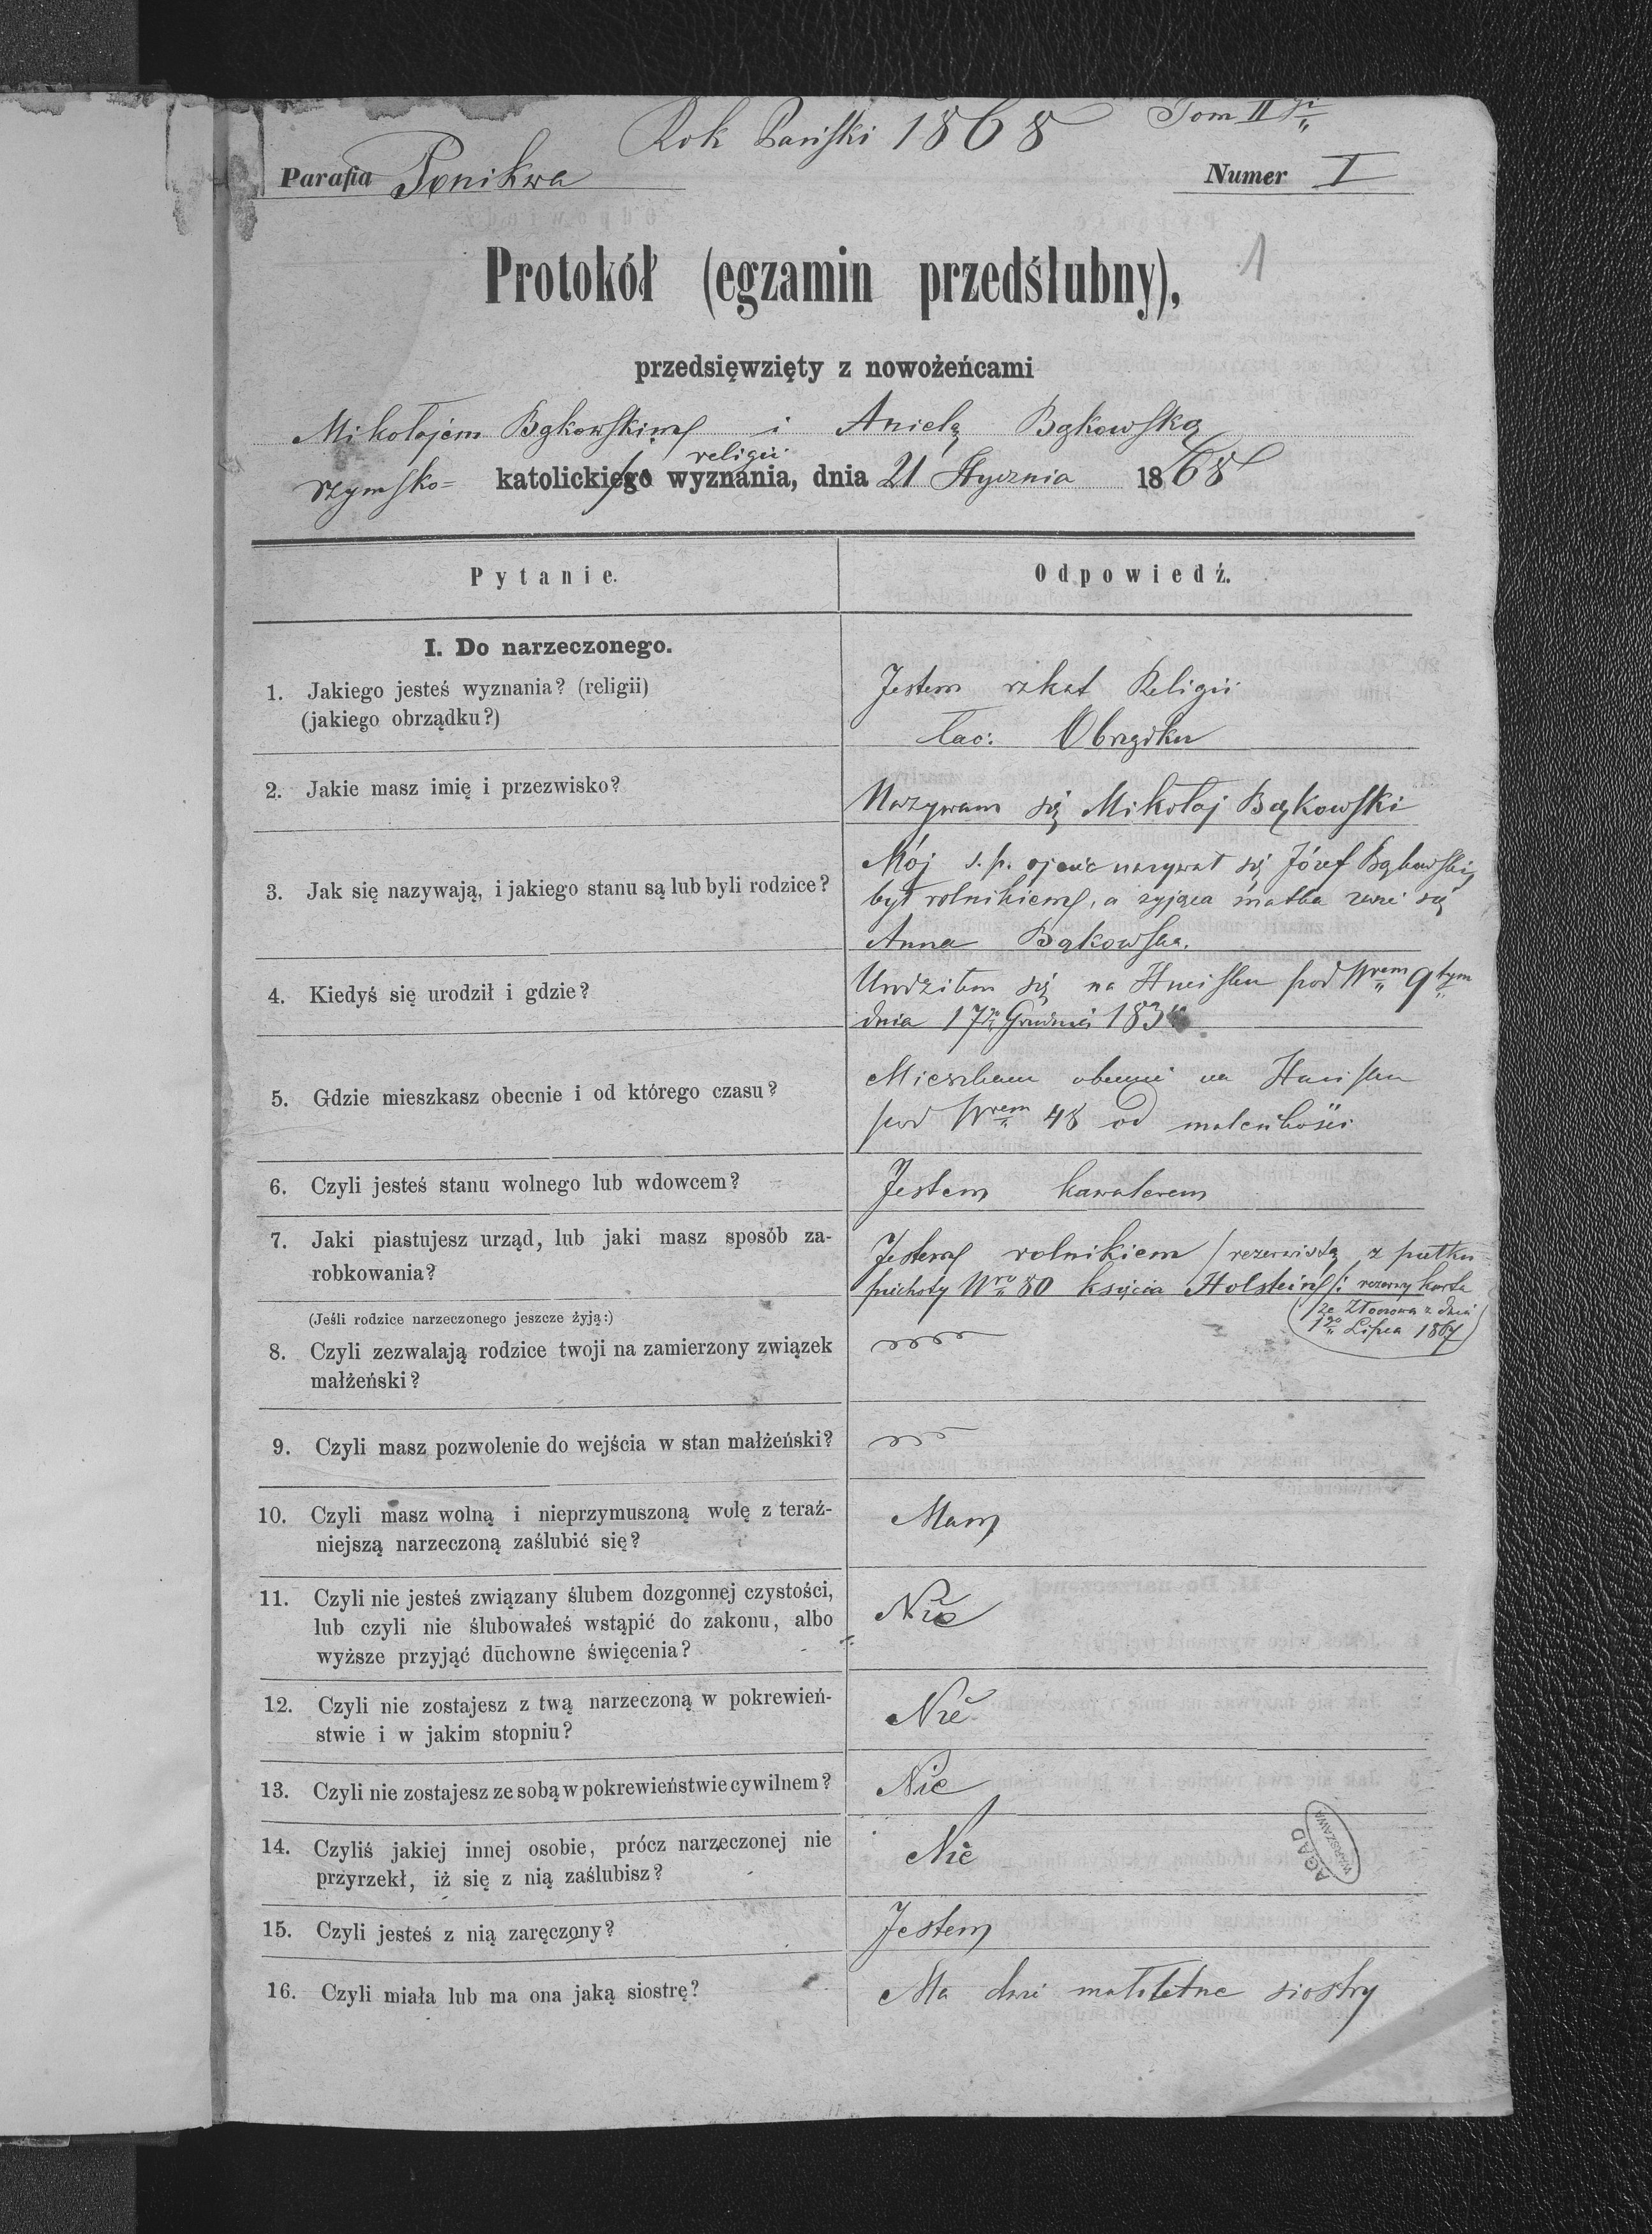 Rok Pański 1868
Tom II gi
Parafia Ponikwa
Numer I
Protokół (egzamin przedślubny),
1
przedsięwzięty z nowożeńcami
Mikołajem Bąkowskim i Anielą Bąkowską
religii
rzymsko= katolickiego wyznania, dnia 21 Stycznia 1868
Pytanie.
Odpowiedź.
I. Do narzeczonego.
1. Jakiego jesteś wyznania? (religii)
(jakiego obrządku?)
Jestem rzkat Religii
łac: Obrządku
2. Jakie masz imię i przezwisko?
Nazywam się Mikołaj Bąkowski
3. Jak się nazywają, i jakiego stanu są lub byli rodzice?
Mój s.p. ojciec nazywał się Józef Bąkowski,
był rolnikiem, a żyjąca matka zwie się
Anna Bąkowska.
4. Kiedyś się urodził i gdzie?
Urodziłem się na pod Nrem 9tym
dnia 17go Grudnia 183
5. Gdzie mieszkasz obecnie i od którego czasu?
Mieszkam obecnie na
pod Nrem 48 od maleńkości
6. Czyli jesteś stanu wolnego lub wdowcem?
Jestem kawalerem
7. Jaki piastujesz urząd, lub jaki masz sposób za-
robkowania?
Jestem rolnikiem /rezerwistą z pułku
piechoty Nro 80 księcia Holstein/: rezerwy karta
ze Złoczowa z dnia
1go Lipca 1867)
(Jeśli rodzice narzeczonego jeszcze żyją:)
8. Czyli zezwalają rodzice twoji na zamierzony związek
małżeński?
9. Czyli masz pozwolenie do wejścia w stan małżeński?
10. Czyli masz wolną i nieprzymuszoną wolę z teraź-
niejszą narzeczoną zaślubić się?
Mam
11. Czyli nie jesteś związany ślubem dozgonnej czystości,
lub czyli nie ślubowałeś wstąpić do zakonu, albo
wyższe przyjąć duchowne święcenia?
Nie
12. Czyli nie zostajesz z twą narzeczoną w pokrewień-
stwie i w jakim stopniu?
Nie
13. Czyli nie zostajesz ze sobą w pokrewieństwie cywilnem?
Nie
14. Czyliś jakiej innej osobie, prócz narzeczonej nie
przyrzekł, iż się z nią zaślubisz?
Nie
AGAD
WARSZAWA
15. Czyli jesteś z nią zaręczony?
Jestem
16. Czyli miała lub ma ona jaką siostrę?
Ma dwie małoletne siostry